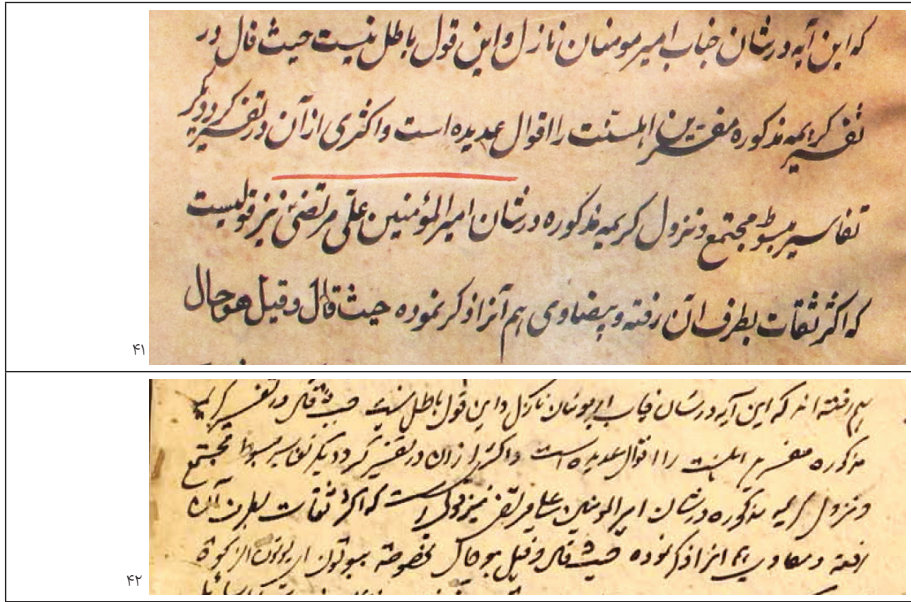 که این آیه در شان جناب امیر مومنان نازل و این قول باطل نیست حیث قال در
تفسیر کریمه مذکوره مفسرین اهلسنت را اقوال عدیده است و اکثری از آن در تفسیر کرد دیگر
تفاسیر مبسوط مجتمع و نزول کریمه مذکوره در شان امیر المؤمنین علی مرتضی نیز قولیست
که اکثر ثقات بطرف آن رفته و بیضاوی هم آنرا ذکر نموده حیث قال و قیل هو حال
۴۱
هم رفته اند که این آیه در شان جناب امیر مومنان نازل و این قول باطل نیست حیث قال در تفسیر کریمه
مذکوره مفسرین اهلسنت را اقوال عدیده است و اکثر از آن در تفسیر کرد دیگر تفاسیر مبسوط مجتمع
و نزول کریمه مذکوره در شان امیر المومنین علی مرتضی نیز قولی است که اکثر ثقات بطرف آن
رفته و هم انرا ذکر نموده حیث قال و قیل هو حال مخصوصة بیوتون
۴۲